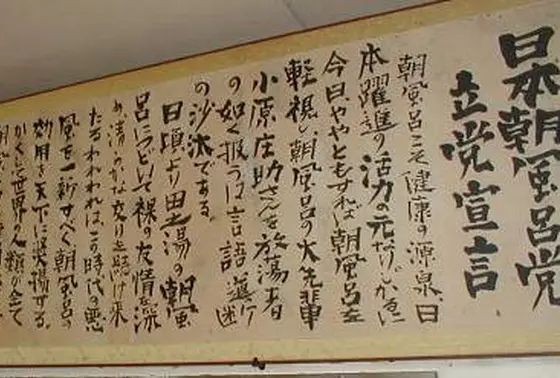 日本朝風呂党
立党宣言
朝風呂こそ健康の源泉、日
本躍進の活力の元なり。しかるに
今日、ややともすれば朝風呂を
軽視し、朝風呂の大先輩
小原庄助さんを放蕩者
の如く扱うは言語道断
の沙汰である。
日頃より田之湯の朝風
呂につどいて裸の友情を深
め、清らかな交りを続け来
たるわれわれは、この時代の悪
風を一新すべく朝風呂の
効用を天下に発揚する。
かくして世界の人類が全て